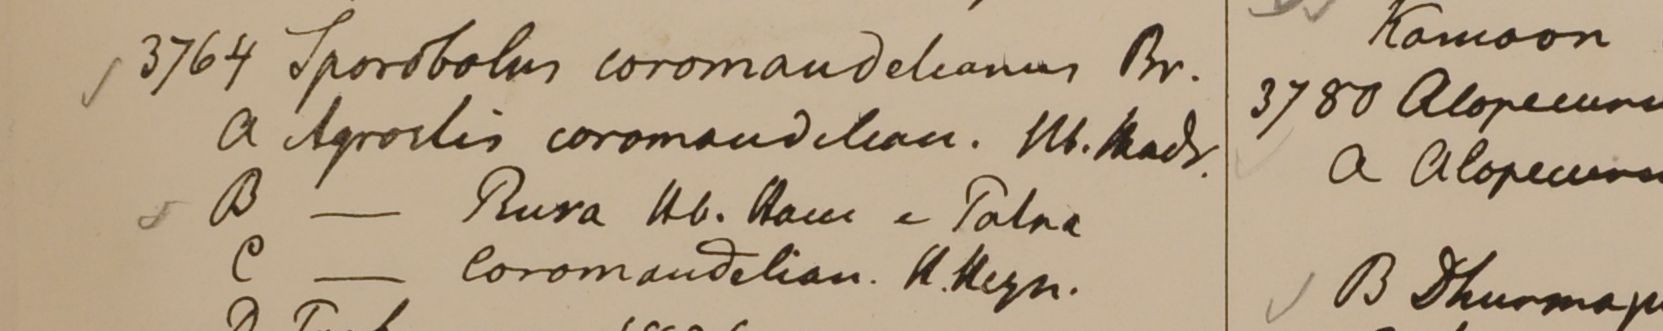 3764 Sporobolus coromandelianus Br.
A Agrostis coromandelian. Hb. Madr.
B — Rura Hb. Ham e Patna
C — Coromandelian. H. Heyn.
D
Kamaon
3780 Alopecurus
A Alopecurus
B Dhurmap